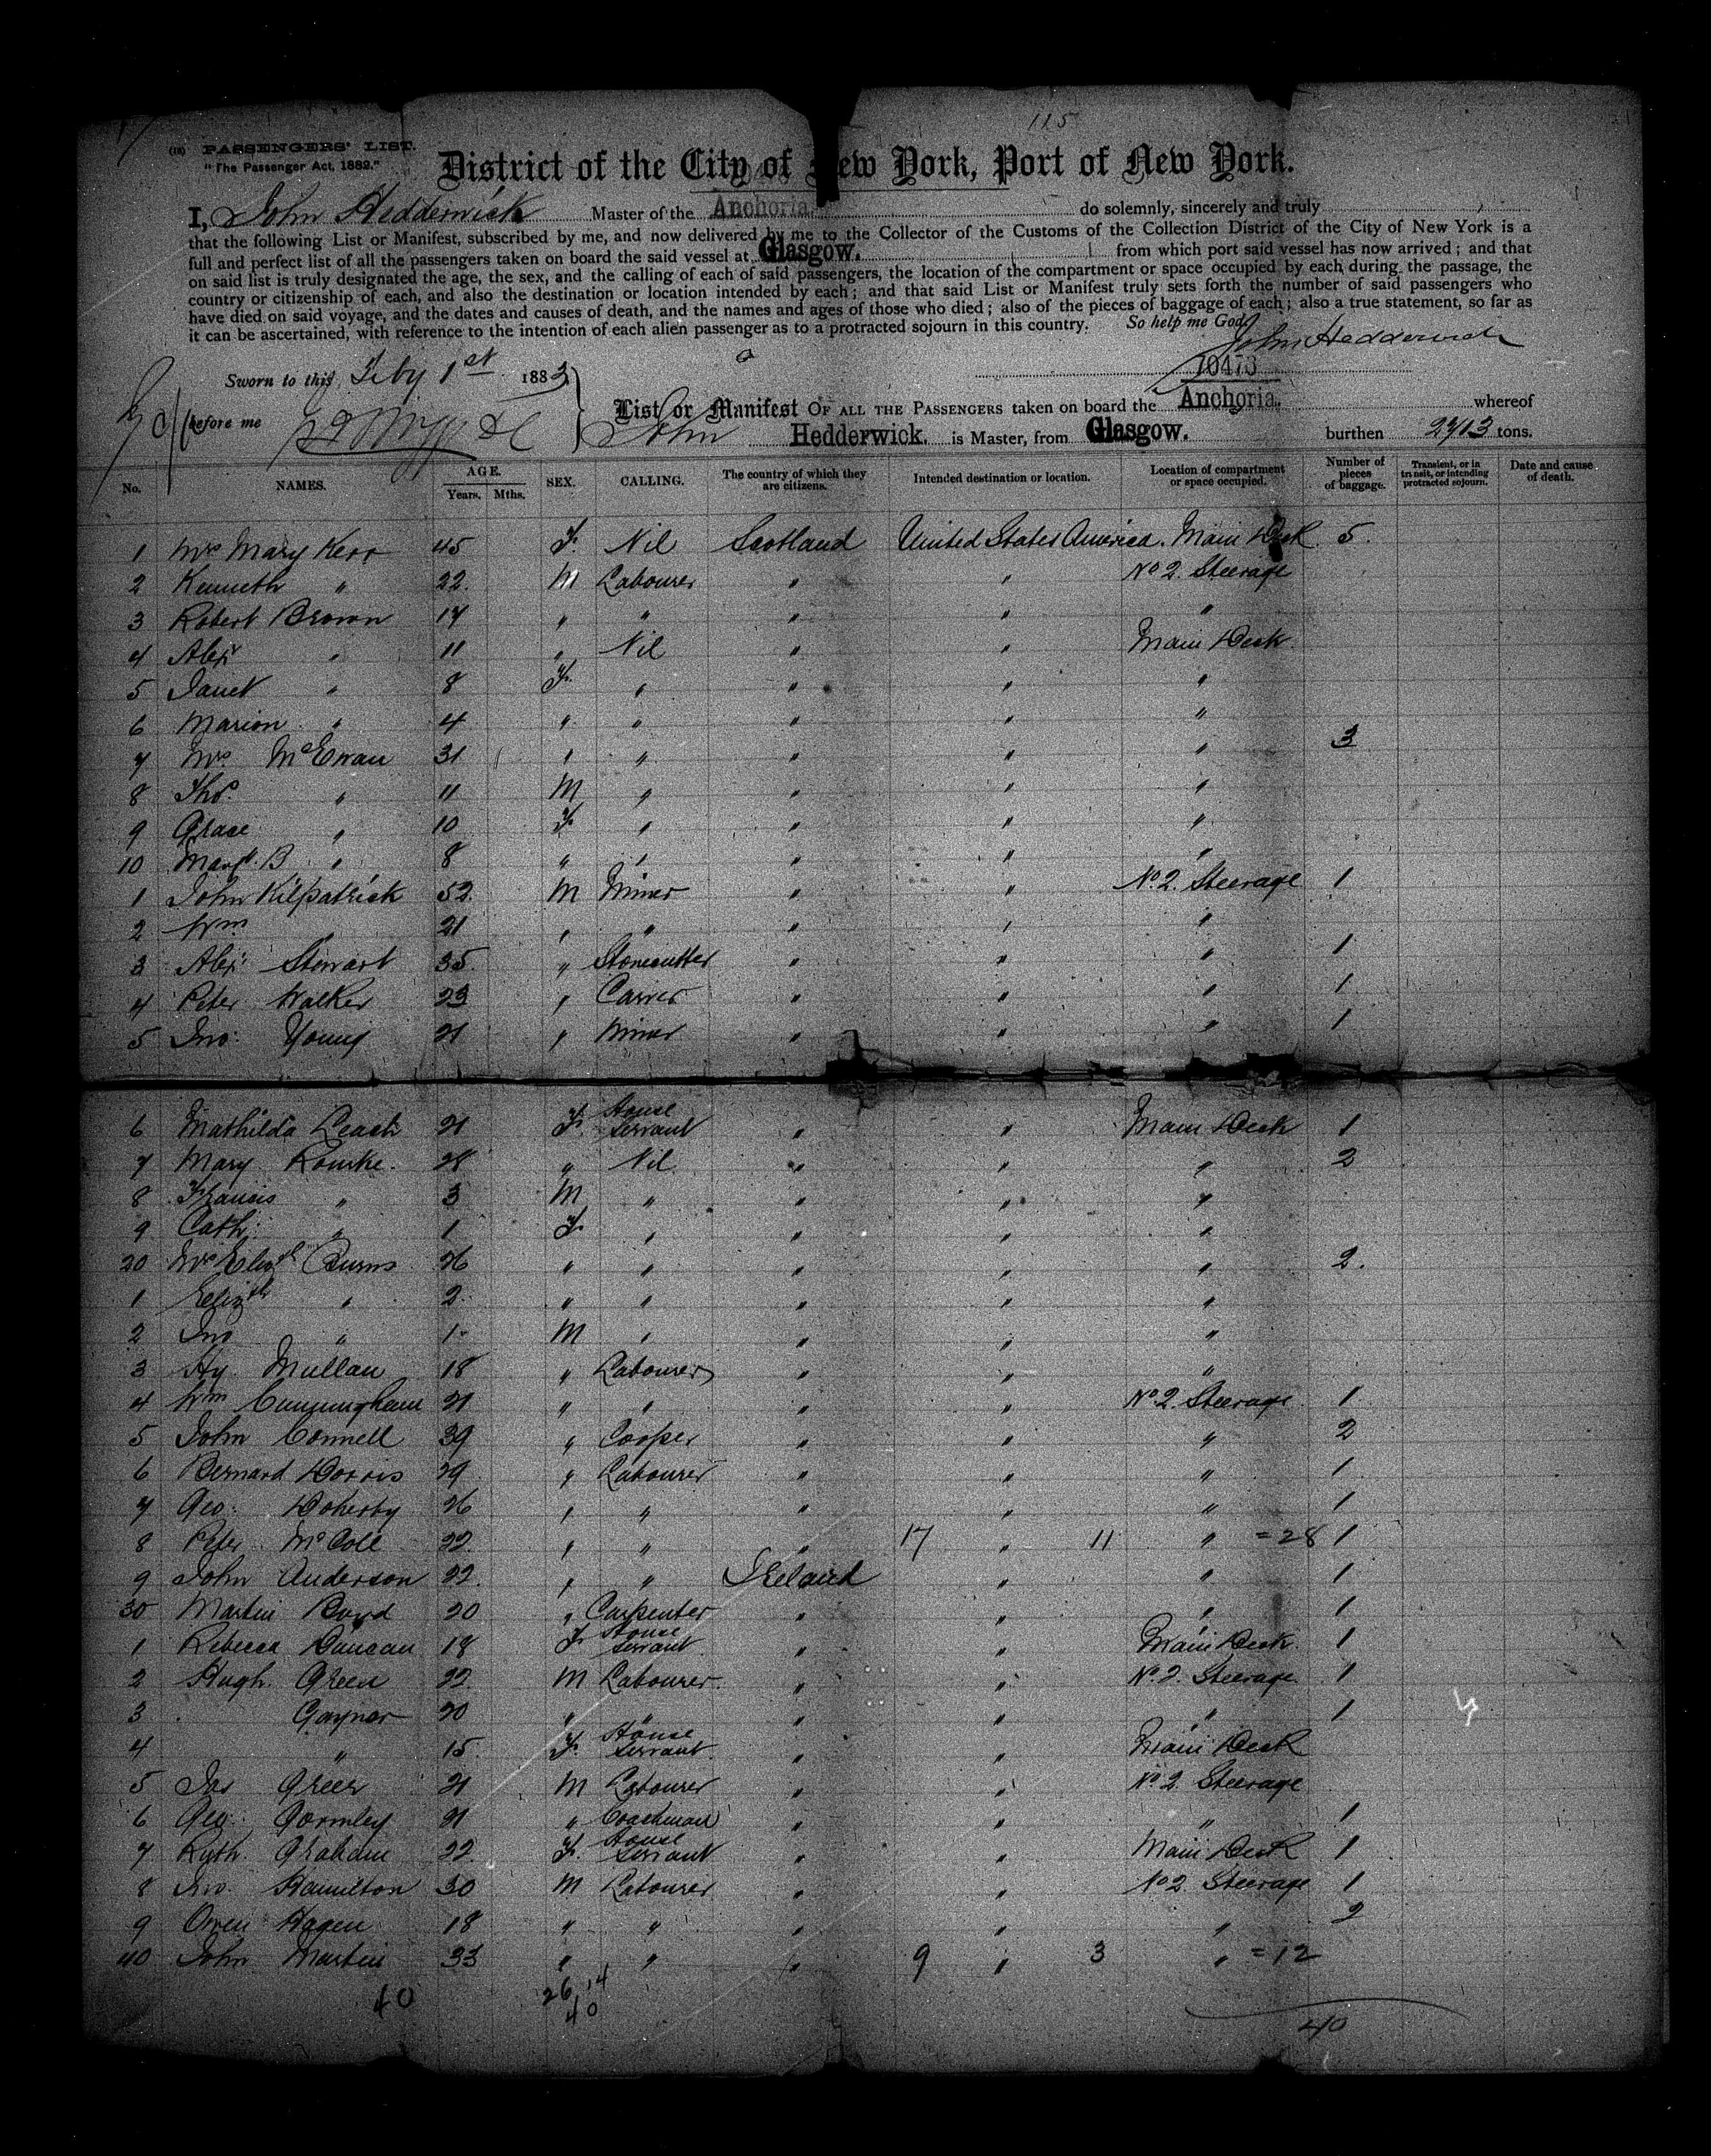 115
(18) PASSENGERS' LIST.
"The Passenger Act, 1882."
District of the City of New York, Port of New York.
I, John Hedderwick Master of the Anchoria. do solemnly, sincerely and truly
that the following List or Manifest, subscribed by me, and now delivered by me to the Collector of the Customs of the Collection District of the City of New York is a
full and perfect list of all the passengers taken on board the said vessel at Glasgow. from which port said vessel has now arrived; and that
on said list is truly designated the age, the sex, and the calling of each of said passengers, the location of the compartment or space occupied by each during the passage, the
country or citizenship of each, and also the destination or location intended by each; and that said List or Manifest truly sets forth the number of said passengers who
have died on said voyage, and the dates and causes of death, and the names and ages of those who died; also of the pieces of baggage of each; also a true statement, so far as
it can be ascertained, with reference to the intention of each alien passenger as to a protracted sojourn in this country. So help me God.
John Hedderwick
10473
Sworn to this Feby 1st 1883
before me
List or Manifest OF ALL THE PASSENGERS taken on board the Anchoria. whereof
John Hedderwick. is Master, from Glasgow. burthen 2713 tons.
No. NAMES. AGE. Years. Mths. SEX. CALLING. The country of which they are citizens. Intended destination or location. Location of compartment or space occupied. Number of pieces of baggage. Transient, or in transit, or intending protracted sojourn. Date and cause of death.
1 Mrs Mary Kerr 45 F. Nil Scotland United States America. Main Deck 5.
2 Kenneth " 22. M Labourer " " No 2. Steerage
3 Robert Brown 17 " " " " "
4 Alexr " 11 " Nil " " Main Deck
5 Janet " 8 F. " " " "
6 Marion " 4 " " " " "
7 Mrs McEwan 31 " " " " " 3
8 Thos. " 11 M " " " "
9 Grace " 10 F. " " " "
10 Margt. B " 8 " " " " "
1 John Kilpatrick 52. M Miner " " No. 2. Steerage 1
2 Wm " 21 " " " " "
3 Alexr Stewart 35. " Stonecutter " " " 1
4 Peter Walker 23 " Carver " " " 1
5 Jno: Young 21 " Miner " " " 1
6 Mathilda Leach 21 F. House Servant " " Main Deck 1
7 Mary Rourke. 28 " Nil " " " 2
8 Francis " 3 M " " " "
9 Cath: " 1 F. " " " "
20 Mrs Elizth Burns 26 " " " " " 2.
1 Elizth " 2. " " " " "
2 Jno " 1 M " " " "
3 Hy. Mullan 18 " Labourer " " "
4 Wm Cunningham 21 " " " " No 2. Steerage 1
5 John Connell 39 " Cooper " " " 2
6 Bernard Dorris 29 " Labourer " " " 1
7 Geo: Doherty 26 " " " " " 1
8 Peter McColl 22. " " " 17 " 11 " = 28 1
9 John Anderson 22. " " Ireland " " 1
30 Martin Boyd 20 " Carpenter " " " 1
1 Rebecca Duncan 18 F. House Servant " " Main Deck. 1
2 Hugh Green 22. M Labourer " " No 2. Steerage 1
3 Gaynor 20 " " " " " 1
4 " 15. F. House Servant " " Main Deck
5 Jas Greer 21 M Labourer " " No 2. Steerage
6 Geo: Gormley 21 " Coachman " " " 1
7 Ruth. Graham 22. F. House Servant " " Main Deck 1
8 Jno. Hamilton 30 M Labourer " " No 2 Steerage 1
9 Owen Hagen 18 " " " " " 2
40 John Martin 33 " " " 9 " 3 " = 12
40 26 14
40
40